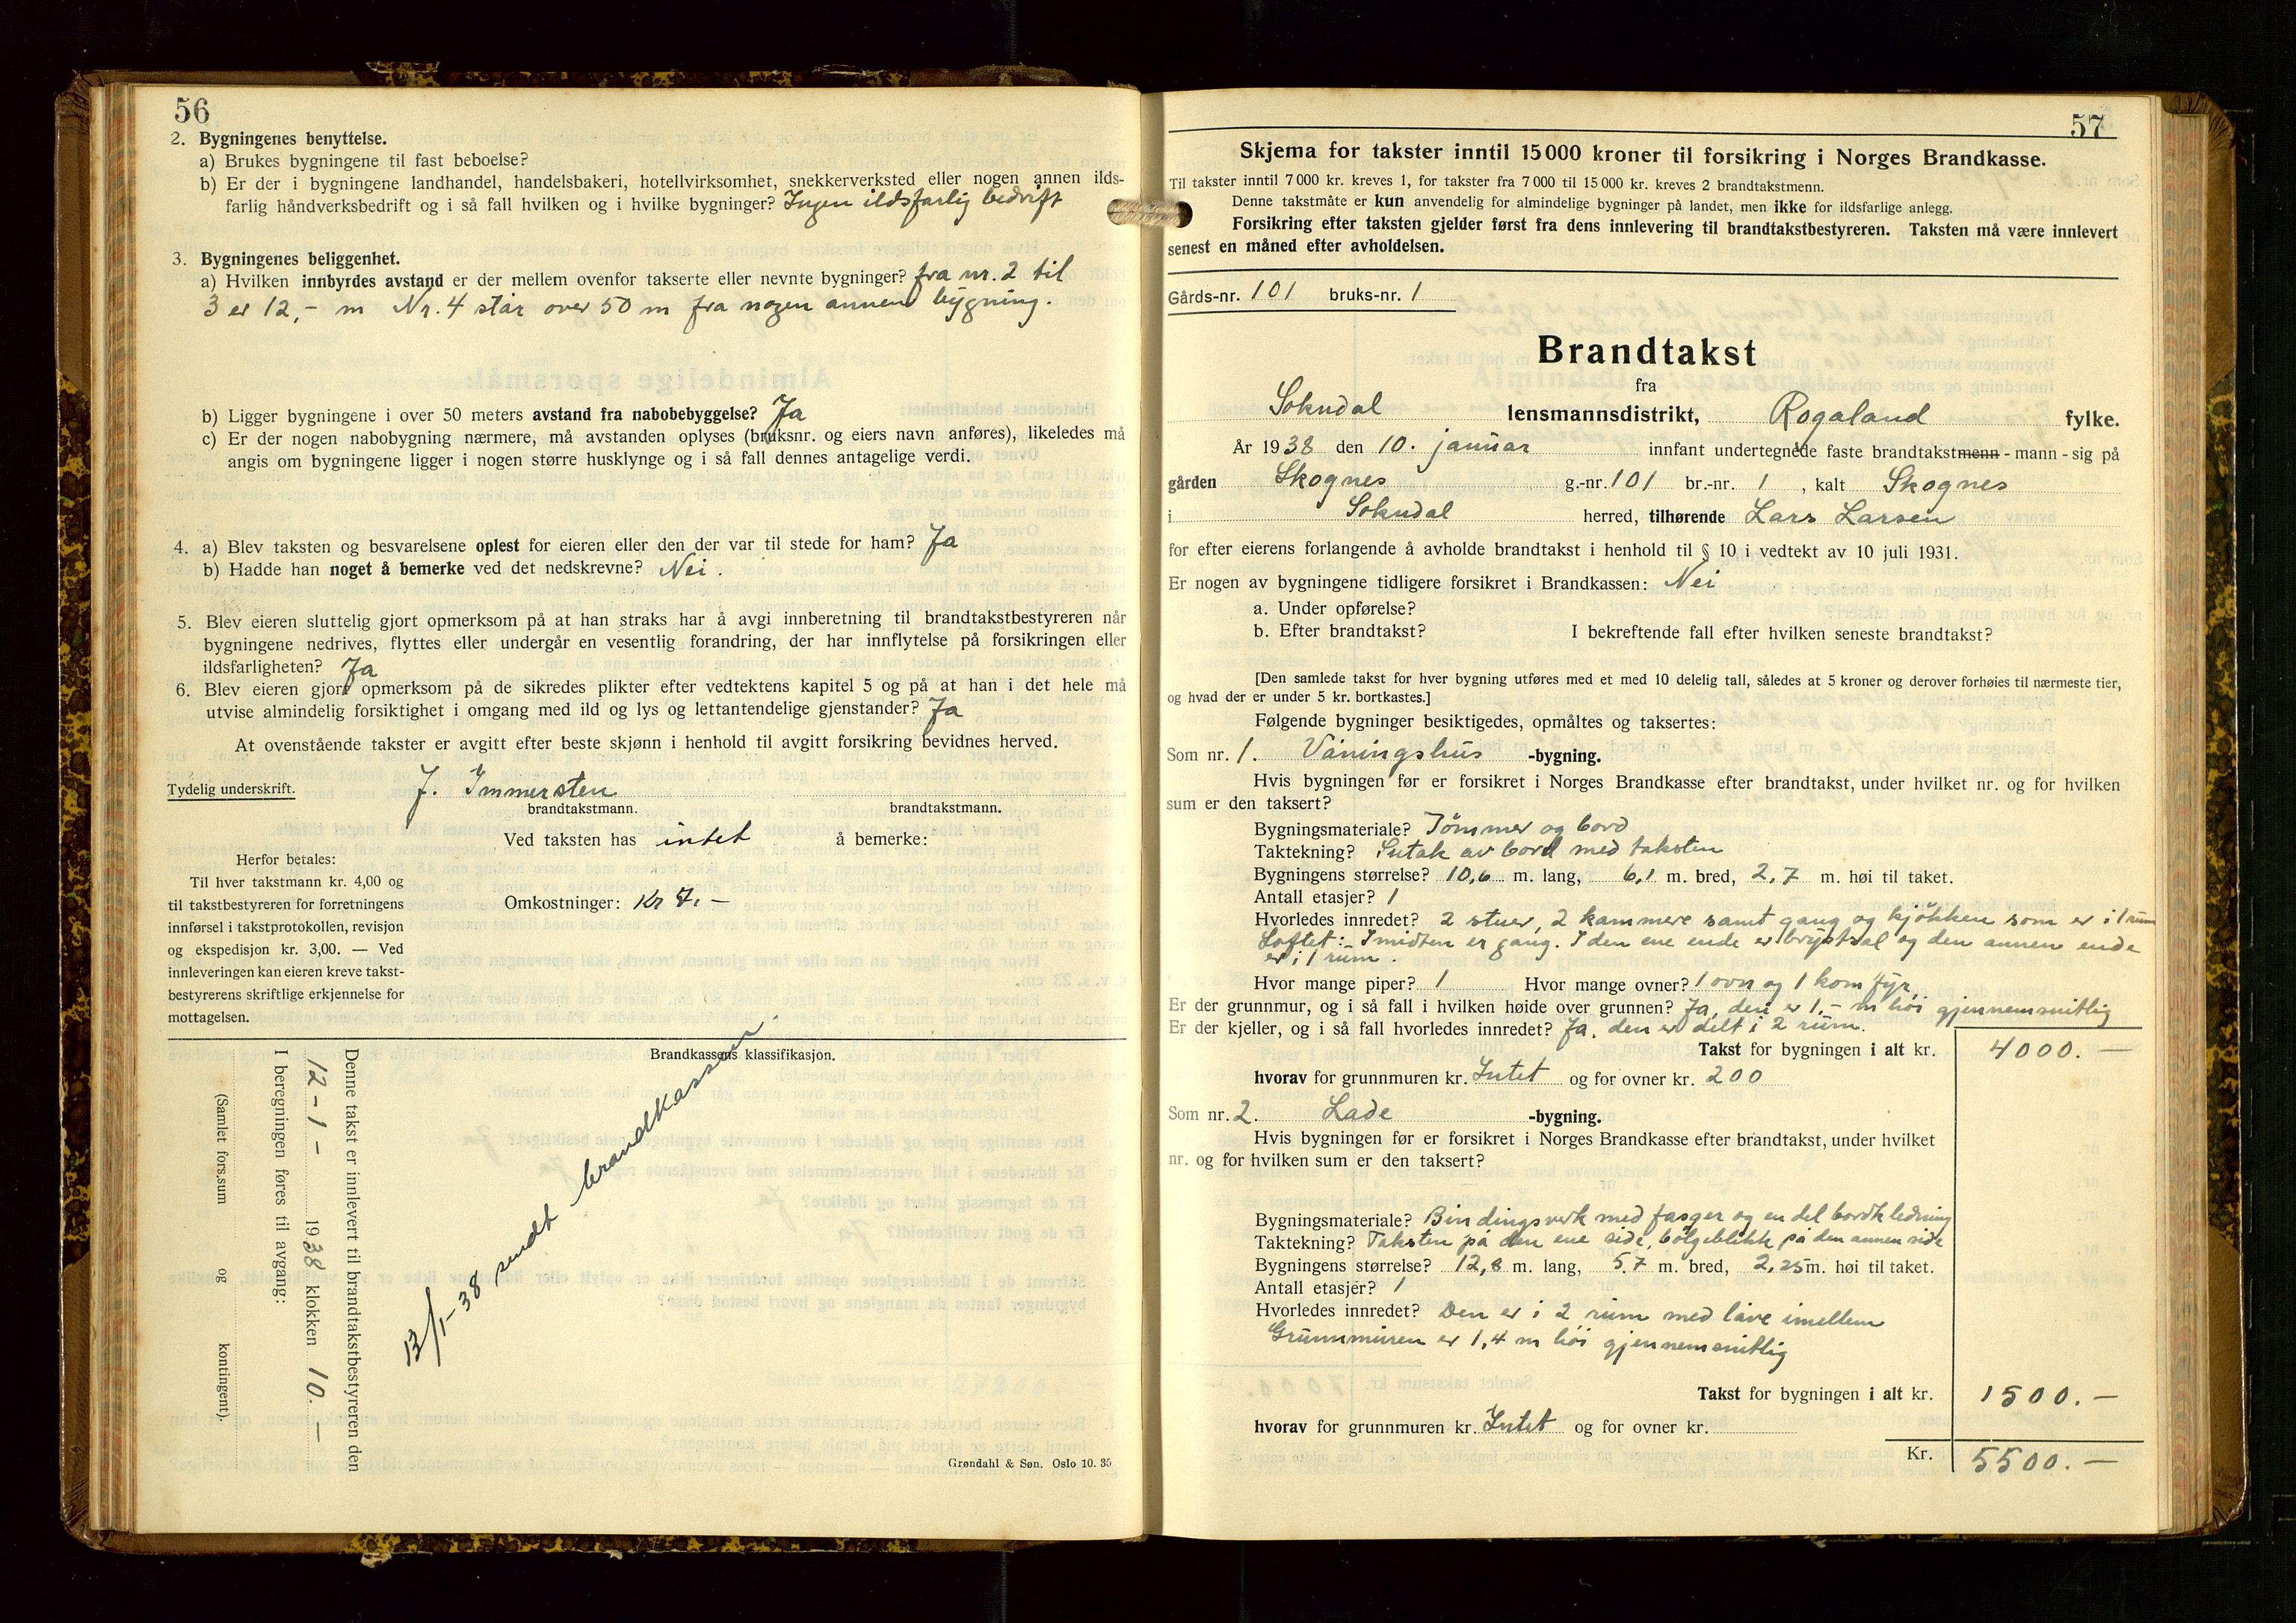 56
2. Bygningenes benyttelse.
a) Brukes bygningene til fast beboelse?
b) Er der i bygningene landhandel, handelsbakeri, hotellvirksomhet, snekkerverksted eller nogen annen ilds-
farlig håndverksbedrift og i så fall hvilken og i hvilke bygninger? Ingen ildsfarlig bedrift
3. Bygningenes beliggenhet.
a) Hvilken innbyrdes avstand er der mellem ovenfor takserte eller nevnte bygninger? fra nr. 2 til
3 er 12,- m Nr. 4 står over 50 m fra nogen annen bygning.
b) Ligger bygningene i over 50 meters avstand fra nabobebyggelse? Ja
c) Er der nogen nabobygning nærmere, må avstanden oplyses (bruksnr. og eiers navn anføres), likeledes må
angis om bygningene ligger i nogen større husklynge og i så fall dennes antagelige verdi.
4. a) Blev taksten og besvarelsene oplest for eieren eller den der var til stede for ham? Ja
b) Hadde han noget å bemerke ved det nedskrevne? Nei.
5. Blev eieren sluttelig gjort opmerksom på at han straks har å avgi innberetning til brandtakstbestyreren når
bygningene nedrives, flyttes eller undergår en vesentlig forandring, der har innflytelse på forsikringen eller
ildsfarligheten? Ja
6. Blev eieren gjort opmerksom på de sikredes plikter efter vedtektens kapitel 5 og på at han i det hele må
utvise almindelig forsiktighet i omgang med ild og lys og lettantendelige gjenstander? Ja
At ovenstående takster er avgitt efter beste skjønn i henhold til avgitt forsikring bevidnes herved.
Tydelig underskrift. J. Immersten
brandtakstmann. brandtakstmann.
Ved taksten has intet å bemerke:
Herfor betales:
Til hver takstmann kr. 4,00 og
til takstbestyreren for forretningens
innførsel i takstprotokollen, revisjon
og ekspedisjon kr. 3,00. — Ved
innleveringen kan eieren kreve takst-
bestyrerens skriftlige erkjennelse for
mottagelsen.
Omkostninger: Kr 7.-
Brandkassens klassifikasjon.
Denne takst er innlevert til brandtakstbestyreren den
12-1- 1938 klokken 10.-
I beregningen føres til avgang:
(Samlet fors.sum og kontingent).
13/1-38 sendt brandkassen.
Grøndahl & Søn. Oslo 10. 35
57
Skjema for takster inntil 15000 kroner til forsikring i Norges Brandkasse.
Til takster inntil 7 000 kr. kreves 1, for takster fra 7 000 til 15 000 kr. kreves 2 brandtakstmenn.
Denne takstmåte er kun anvendelig for almindelige bygninger på landet, men ikke for ildsfarlige anlegg.
Forsikring efter taksten gjelder først fra dens innlevering til brandtakstbestyreren. Taksten må være innlevert
senest en måned efter avholdelsen.
Gårds-nr. 101 bruks-nr. 1
Brandtakst
fra
Sokndal lensmannsdistrikt, Rogaland fylke.
År 1938 den 10. januar innfant undertegnede faste brandtakstmenn - mann - sig på
gården Skognes g.-nr. 101 br.-nr. 1, kalt Skognes
i Sokndal herred, tilhørende Lars Larsen
for efter eierens forlangende å avholde brandtakst i henhold til § 10 i vedtekt av 10 juli 1931.
Er nogen av bygningene tidligere forsikret i Brandkassen: Nei
a. Under opførelse?
b. Efter brandtakst? I bekreftende fall efter hvilken seneste brandtakst?
[Den samlede takst for hver bygning utføres med et med 10 delelig tall, således at 5 kroner og derover forhøies til nærmeste tier,
og hvad der er under 5 kr. bortkastes.]
Følgende bygninger besiktigedes, opmåltes og taksertes:
Som nr. 1. Våningshus -bygning.
Hvis bygningen før er forsikret i Norges Brandkasse efter brandtakst, under hvilket nr. og for hvilken
sum er den taksert?
Bygningsmateriale? Tømmer og bord
Taktekning? Sutak av bord med taksten
Bygningens størrelse? 10,6 m. lang, 6,1 m. bred, 2,7 m. høi til taket.
Antall etasjer? 1
Hvorledes innredet? 2 stuer, 2 kammere samt gang og kjøkken som er i 1 rum
Loftet:- I midten er gang. I den ene ende er brystsal og den annen ende
er i 1 rum.
Hvor mange piper? 1 Hvor mange ovner? 1 ovn og 1 komfyr
Er der grunnmur, og i så fall i hvilken høide over grunnen? Ja, den er 1,- m høi gjennemsnitlig
Er der kjeller, og i så fall hvorledes innredet? Ja, den er delt i 2 rum.
Takst for bygningen i alt kr. 4000.-
hvorav for grunnmuren kr. Intet og for ovner kr. 200
Som nr. 2. Lade -bygning.
Hvis bygningen før er forsikret i Norges Brandkasse efter brandtakst, under hvilket
nr. og for hvilken sum er den taksert?
Bygningsmateriale? Bindingsverk med fasger og en del bordkledning
Taktekning? Taksten på den ene side, bølgeblikk på den annen side
Bygningens størrelse? 12,8 m. lang, 5,7 m. bred, 2,25 m. høi til taket.
Antall etasjer? 1
Hvorledes innredet? Den er i 2 rum med låve imellem
Grunnmuren er 1,4 m høi gjennemsnitlig
Takst for bygningen i alt kr. 1500.-
hvorav for grunnmuren kr. Intet og for ovner kr.
Kr. 5500.-